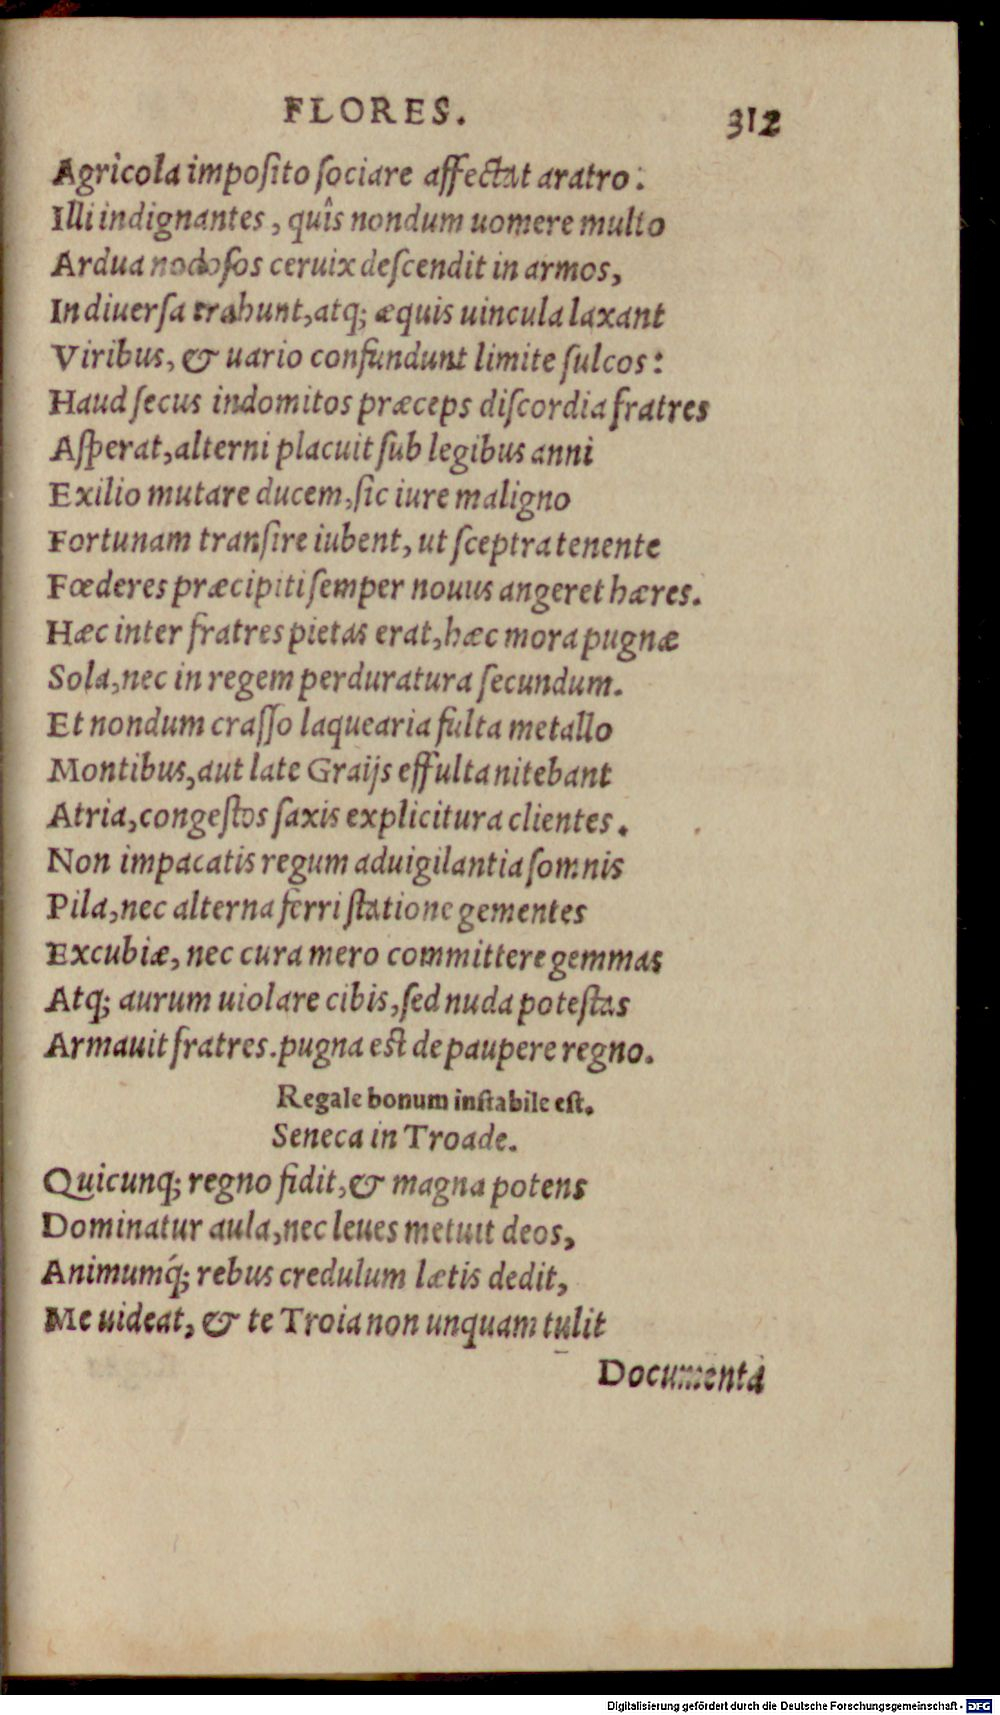 FLORES. 312
Agricola imposito sociare affectat aratro:
Illi indignantes, quîs nondum uomere multo
Ardua nodosos ceruix descendit in armos,
In diuersa trahunt, atq; æquis uincula laxant
Viribus, & uario confundunt limite sulcos:
Haud secus indomitos præceps discordia fratres
Asperat, alterni placuit sub legibus anni
Exilio mutare ducem, sic iure maligno
Fortunam transire iubent, ut sceptra tenente
Fœderes præcipiti semper nouus angeret hæres.
Hæc inter fratres pietas erat, hæc mora pugnæ
Sola, nec in regem perduratura secundum.
Et nondum crasso laquearia fulta metallo
Montibus, aut late Graijs effulta nitebant
Atria, congestos saxis explicitura clientes.
Non impacatis regum aduigilantia somnis
Pila, nec alterna ferri statione gementes
Excubiæ, nec cura mero committere gemmas
Atq; aurum uiolare cibis, sed nuda potestas
Armauit fratres. pugna est de paupere regno.
Regale bonum instabile est.
Seneca in Troade.
Quicunq; regno fidit, & magna potens
Dominatur aula, nec leues metuit deos,
Animumq́; rebus credulum lætis dedit,
Me uideat, & te Troia non unquam tulit
Documenta
Digitalisierung gefördert durch die Deutsche Forschungsgemeinschaft - DFG